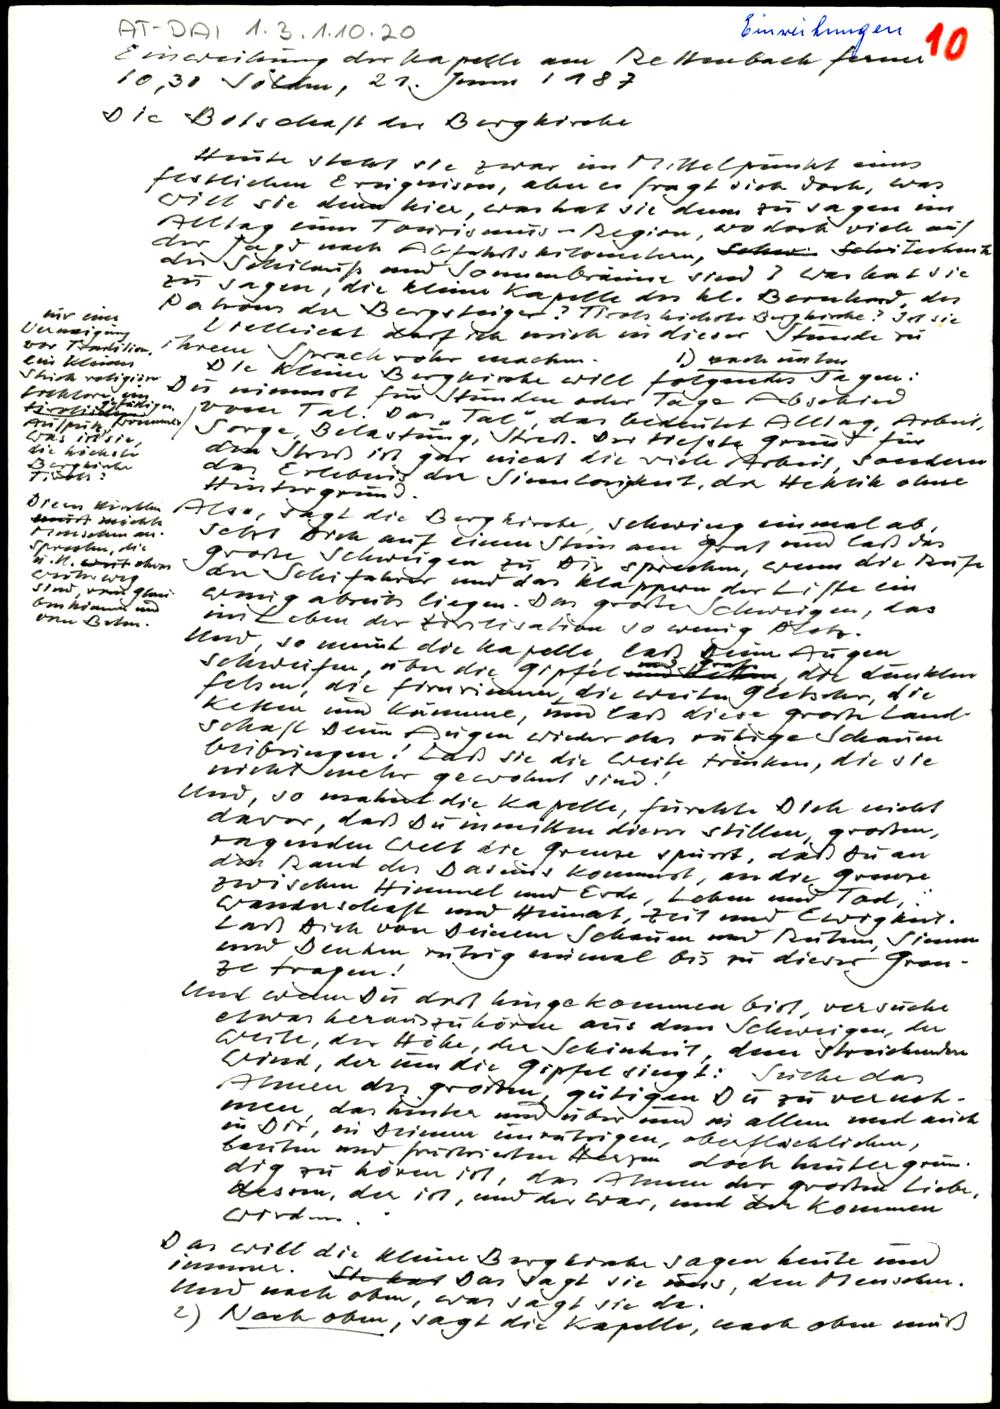 AT-DAI 1.3.1.10.20
Einweihungen 10
Einweihung der Kapelle am Rettenbachferner
10,30 Sölden, 21. Juni 1987
Die Botschaft der Bergkirche
Heute steht sie zwar im Mittelpunkt eines
festlichen Ereignisses, aber es fragt sich doch, was
will sie denn hier, was hat sie denn zu sagen im
Alltag einer Tourismus-Region, wo doch viele auf
der Jagd nach Abfahrtskilometern, Schitechnik
der Schilauf und Sonnenbräune sind? Was hat sie
zu sagen, die kleine Kapelle des hl. Bernhard, des
Patrons der Bergsteiger? Tirols höchste Bergkirche? Ist sie
nur eine
Verneigung
vor Tradition,
ein kleines
Stück religiöser
Folklore, ein
gefälliger
frommer
Aufputz,
was ist sie,
die höchste
Bergkirche
Tirols?
Vielleicht darf ich mich in dieser Stunde zu
ihrem Sprachrohr machen. 1) nach unten
Die kleine Bergkirche will folgendes sagen:
Du nimmst für Stunden oder Tage Abschied
vom Tal. Das "Tal", das bedeutet Alltag, Arbeit,
Sorge, Belastung, Streß. Der tiefste Grund für
den Streß ist gar nicht die viele Arbeit, sondern
das Erlebnis der Sinnlosigkeit, der Hektik ohne
Hintergrund.
Dieses Kirchlein
möchte
Menschen an-
sprechen, die
u.U. etwas
weiter weg
sind, vom glau-
ben können und
vom Beten.
Also, sagt die Bergkirche, schwing einmal ab,
setz Dich auf einen Stein am Grat und laß das
große Schweigen zu Dir sprechen, wenn die Rufe
der Schifahrer und das Klappern der Lifte ein
wenig abseits liegen. Das große Schweigen, das
im Leben der Zivilisation so wenig Platz.
Und, so meint die Kapelle, laß Deine Augen
schweifen, über die Gipfel und Grate, die dunklen
Felsen, die Firnrinnen, die weiten Gletscher, die
Ketten und Kämme, und laß diese große Land-
schaft Deinen Augen wieder das ruhige Schauen
beibringen! Laß sie die Weite trinken, die sie
nicht mehr gewohnt sind!
Und, so mahnt die Kapelle, fürchte Dich nicht
davor, daß Du inmitten dieser stillen, großen,
ragenden Welt die Grenze spürst, daß Du an
den Rand des Daseins kommst, an die Grenze
zwischen Himmel und Erde, Leben und Tod,
Wanderschaft und Heimat, Zeit und Ewigkeit.
Laß Dich von Deinem Schauen und Ruhen, Sinnen
und Denken ruhig einmal bis zu dieser Gren-
ze tragen!
Und wenn Du dort hingekommen bist, versuche
etwas herauszuhören aus dem Schweigen, der
Weite, der Höhe, der Schönheit, dem streichenden
Wind, der um die Gipfel singt: Suche das
Ahnen des großen, gütigen Du zu verneh-
men, das hinter und über und in allem und auch
in Dir, in Deinem unruhigen, oberflächlichen,
und frustrierten Herzen doch hintergrün-
dig zu hören ist, das Ahnen der großen Liebe,
dessen, der ist, und der war, und der kommen
wird....
Das will die kleine Bergkirche sagen heute und
immer. Das sagt sie uns, den Menschen.
Und nach oben, was sagt sie da.
2) Nach oben, sagt die Kapelle, nach oben muß